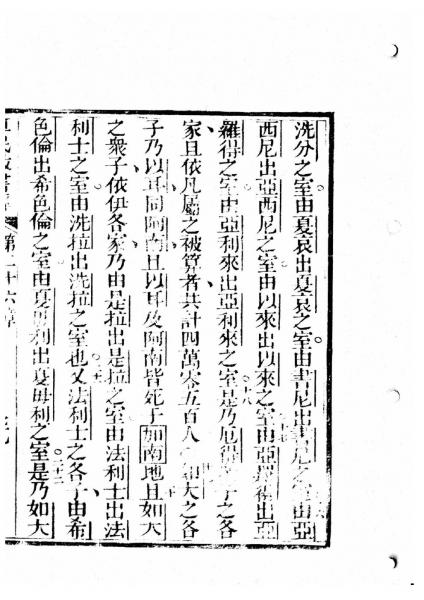 洗分之室由夏哀出夏哀之室由書尼出書尼之室由亞
西尼出亞西尼之室由以來出以來之室由亞羅得出亞
羅得之室由亞利來出亞利來之室是乃厄得子之各
家且依凡屬之被算者共計四萬零五百人如大之各
子乃以耳同阿南且以耳及阿南皆死于加南地且如大
之衆子依伊各家乃由是拉出是拉之室由法利士出法
利士之室由洗拉出洗拉之室也又法利士之各子由希
色倫出希色倫之室由夏毋利出夏毋利之室是乃如大
第二十六章